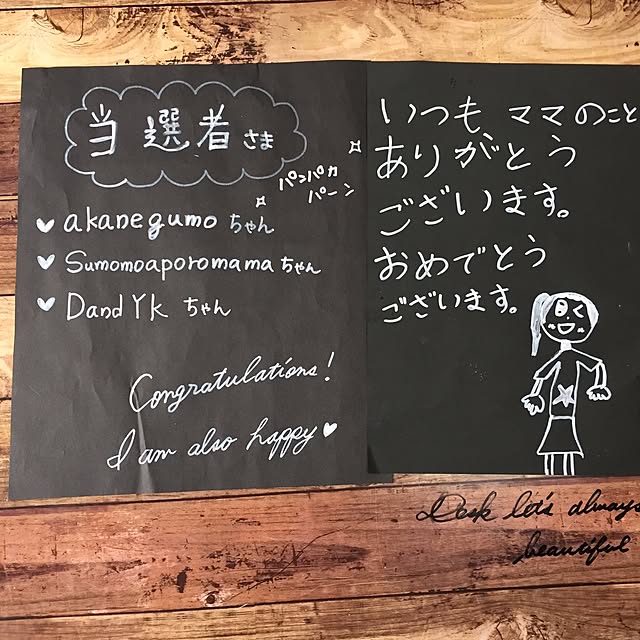 当選者さま
パンパカ
パーン
akanegumoちゃん
Sumomoaporomamaちゃん
DandYkちゃん
Congratulations!
I am also happy
いつも、ママのこと
ありがとう
ございます。
おめでとう
ございます。
Desk let's always
beautiful